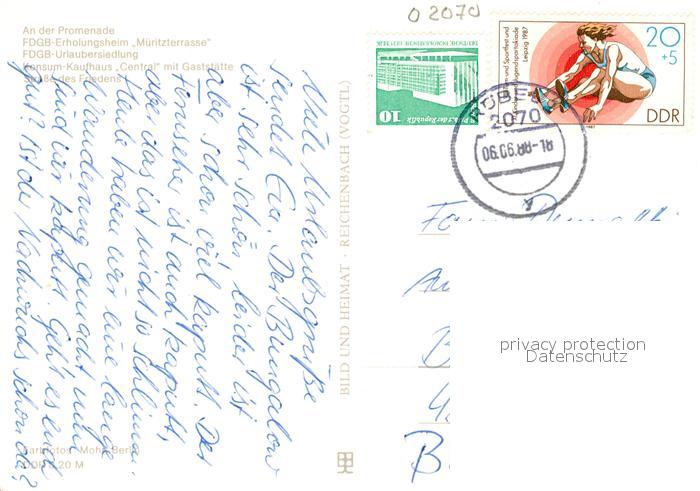 O 2070
An der Promenade
FDGB-Erholungsheim „Müritzterrasse"
FDGB-Urlaubersiedlung
Konsum-Kaufhaus „Central" mit Gaststätte
Straße des Friedens
Viele Urlaubsgrüße
sendet Eva. Der Bungalow
ist sehr schön, leider ist
aber schon viel kaputt. Der
Fernseher ist auch kaputt,
aber das ist nicht so schlimm.
Heute haben wir eine lange
Wanderung gemacht und
sind wir kaputt. Geht es euch
gut? Ist der Nachwuchs schon da?
Farbfotos: Mohr, Berlin
DDR 0,20 M
BILD UND HEIMAT · REICHENBACH (VOGTL)
DEUTSCHE DEMOKRATISCHE REPUBLIK
Palast der Republik
10
Turn- und Sportfest und
Leipzig 1987
20
+5
DDR
1987
RÖBEL
2070
privacy protection
Datenschutz
B
B